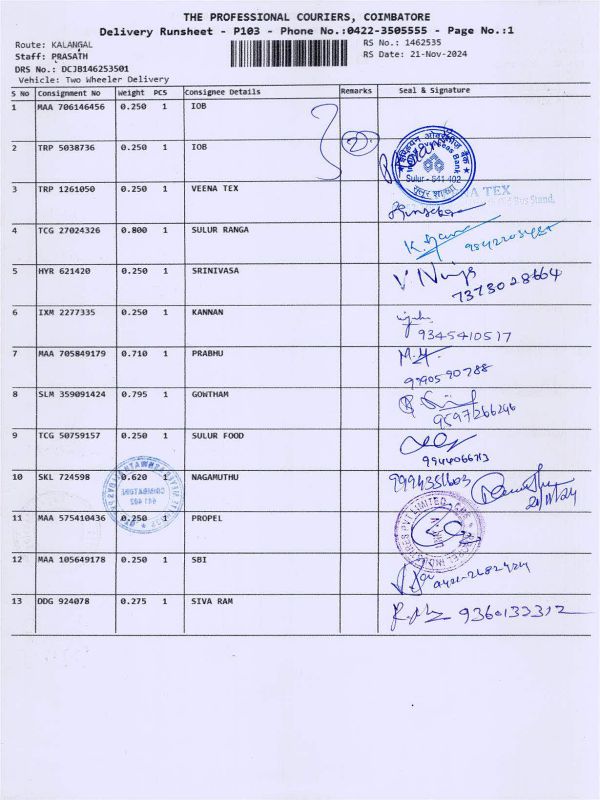 THE PROFESSIONAL COURIERS, COIMBATORE
Delivery Runsheet - P103 - Phone No.:0422-3505555 - Page No.:1
Route: KALANGAL
RS No.: 1462535
Staff: PRASATH
RS Date: 21-Nov-2024
DRS No.: DCJB146253501
Vehicle: Two Wheeler Delivery
S No Consignment No Weight PCS Consignee Details Remarks Seal & Signature
1 MAA 706146456 0.250 1 IOB
2 TRP 5038736 0.250 1 IOB
Sulur - 641 402
3 TRP 1261050 0.250 1 VEENA TEX
TEX
Bus Stand,
4 TCG 27024326 0.800 1 SULUR RANGA
5 HYR 621420 0.250 1 SRINIVASA
7373028664
6 IXM 2277335 0.250 1 KANNAN
9345410517
7 MAA 705849179 0.710 1 PRABHU
8 SLM 359091424 0.795 1 GOWTHAM
9597266246
9 TCG 50759157 0.250 1 SULUR FOOD
10 SKL 724598 0.620 1 NAGAMUTHU
9994351603
21/11/24
11 MAA 575410436 0.250 1 PROPEL
12 MAA 105649178 0.250 1 SBI
13 DDG 924078 0.275 1 SIVA RAM
9360133312